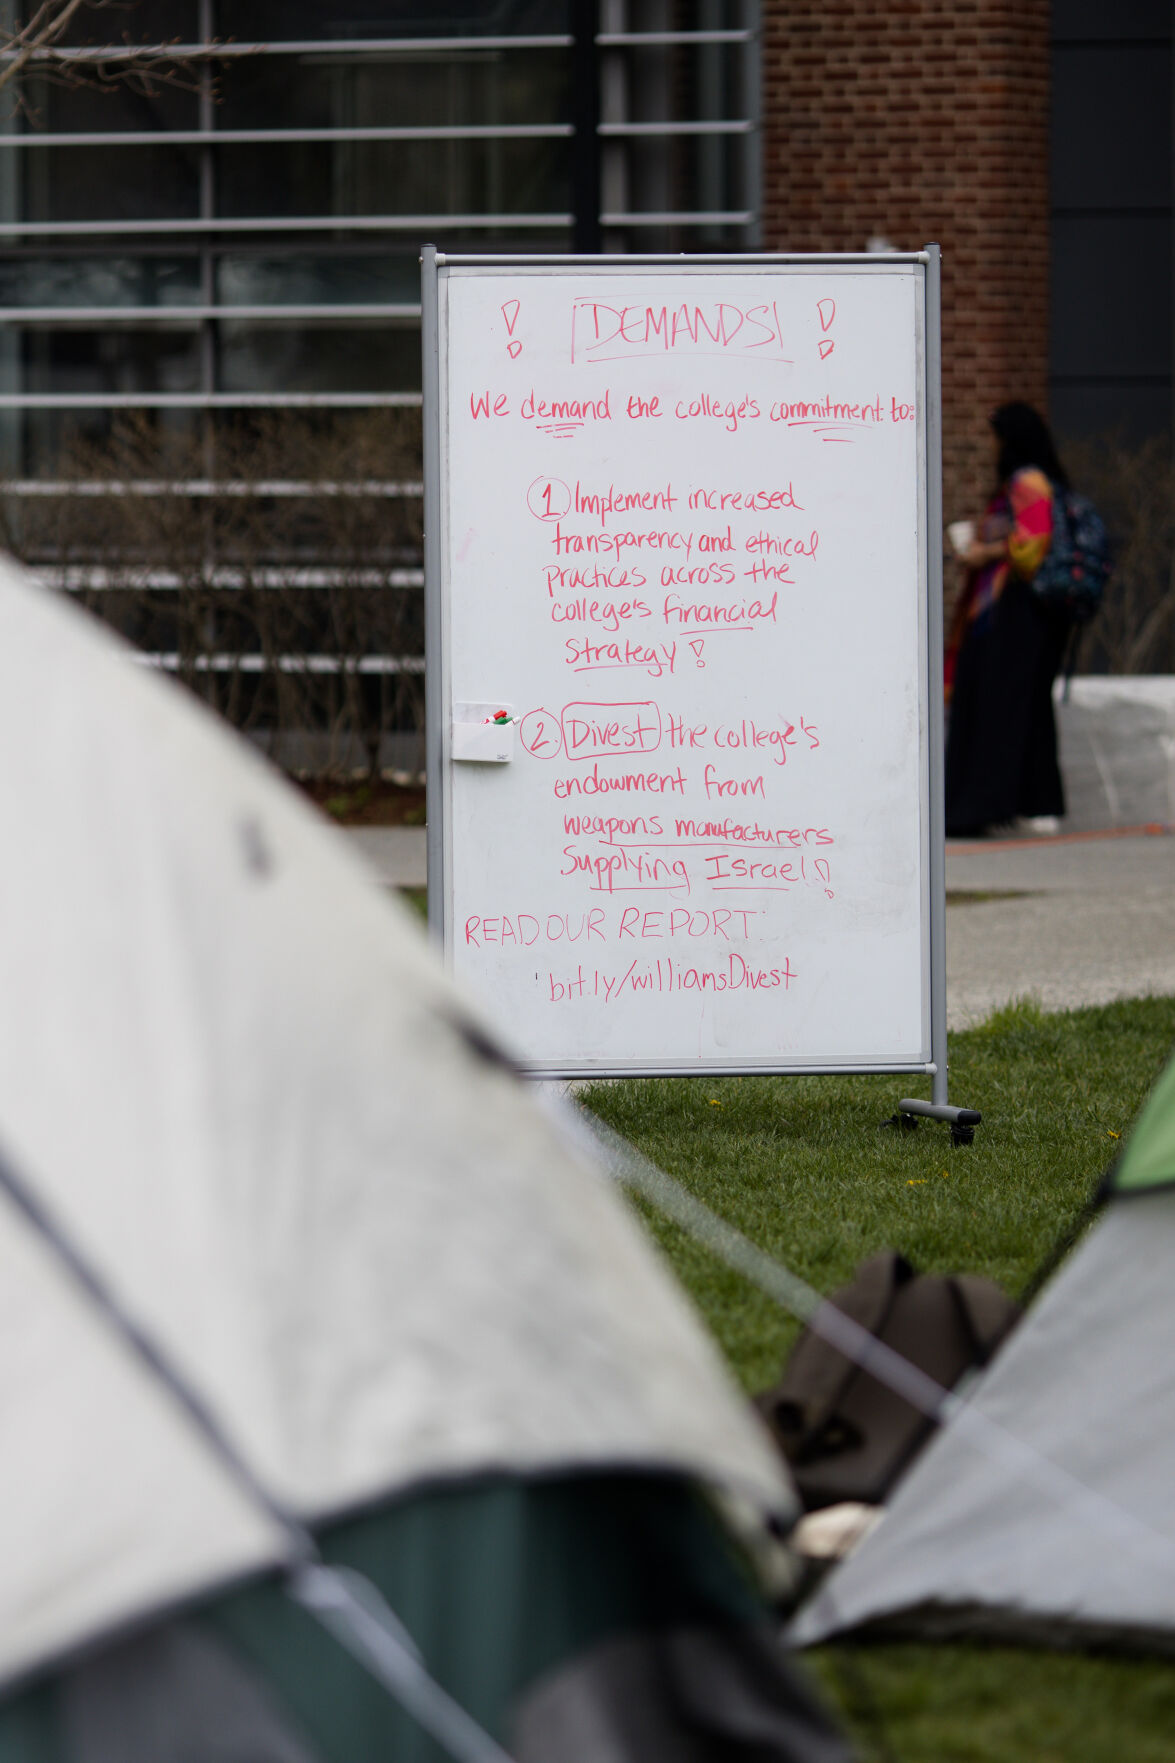 ! DEMANDS !
We demand the college's commitment to:
1 Implement increased
transparency and ethical
practices across the
college's financial
strategy!
2. Divest the college's
endowment from
weapons manufacturers
supplying Israel!
READ OUR REPORT:
bit.ly/williamsDivest